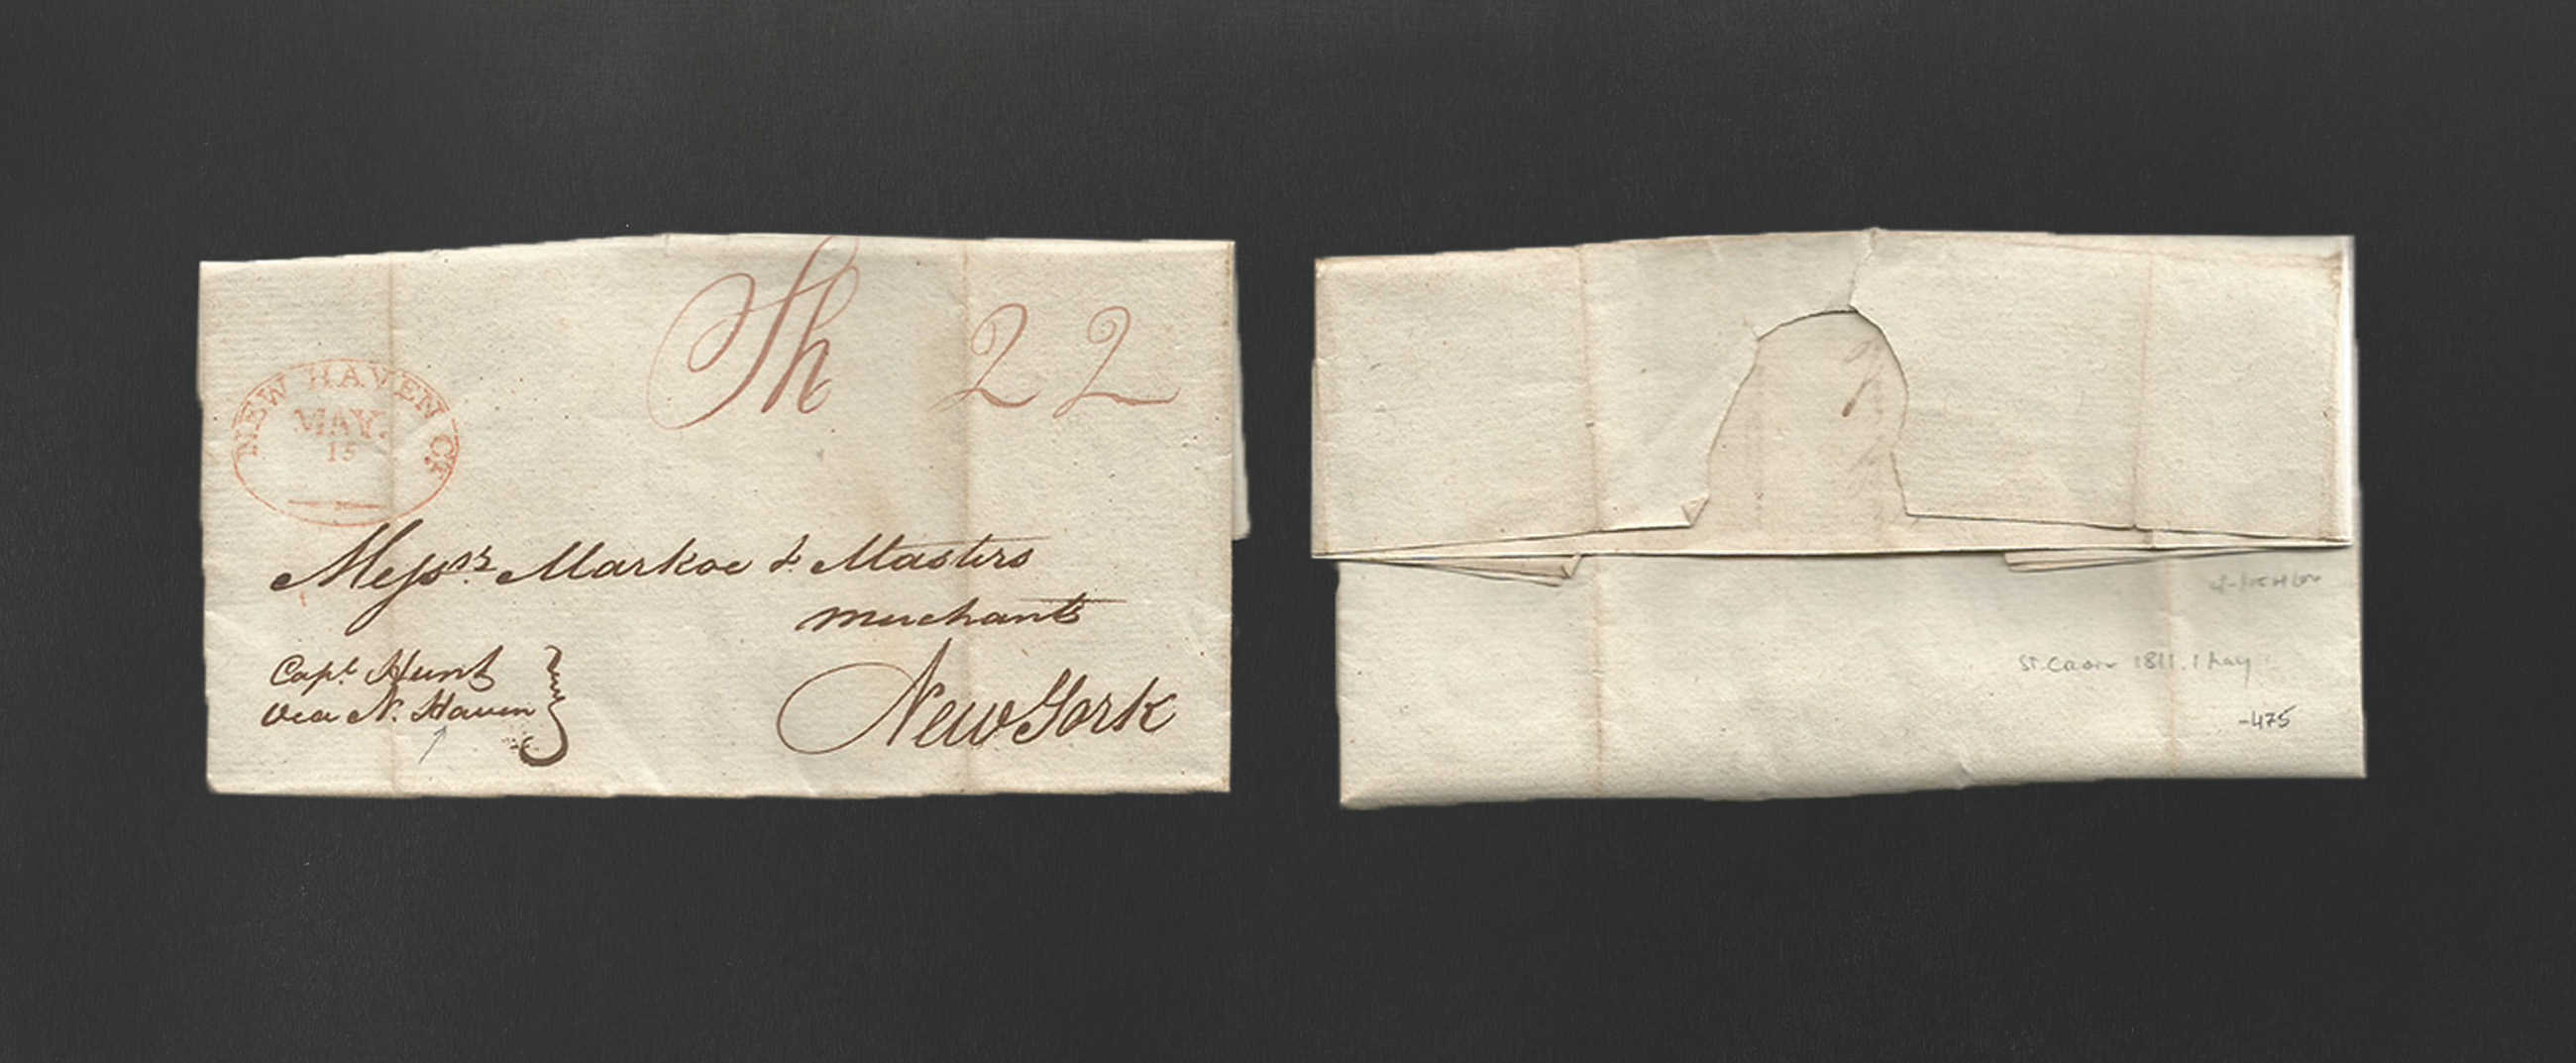 Sh 22
NEW HAVEN Ct.
MAY.
15
Messrs. Markoe & Masters
merchants
Capt. Hunt
via N. Haven
New York
St. Croix 1811. 1 May
-475